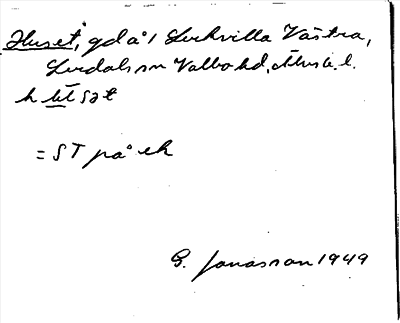 Huset, gd å 1 Lerkvilla Västra,
Lerdals sn Valbo hd, Älvs. l.
hùsət
= ST på ek
G. Jonasson 1949